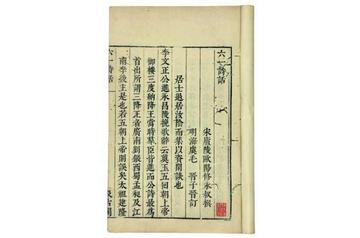 六一詩話
宋廬陵歐陽修永叔撰
明海虞毛晉子晉訂
居士退居汝陰而集以資閒談也
李文正公進永昌陵挽歌辭云奠玉五回朝上帝
御樓三度納降王當時羣臣皆進而公詩最爲
首出所謂三降王者廣南劉鋹西蜀孟昶及江
南李後主是也若五朝上帝則誤矣太祖建隆
六一詩話
汲古閣